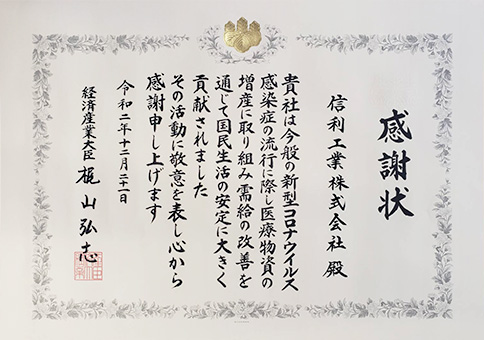 感謝状
信利工業株式会社 殿
貴社は今般の新型コロナウイルス
感染症の流行に際し医療物資の
増産に取り組み需給の改善を
通して国民生活の安定に大きく
貢献されました
その活動に敬意を表し心から
感謝申し上げます
令和二年十二月二十一日
経済産業大臣 梶山弘志